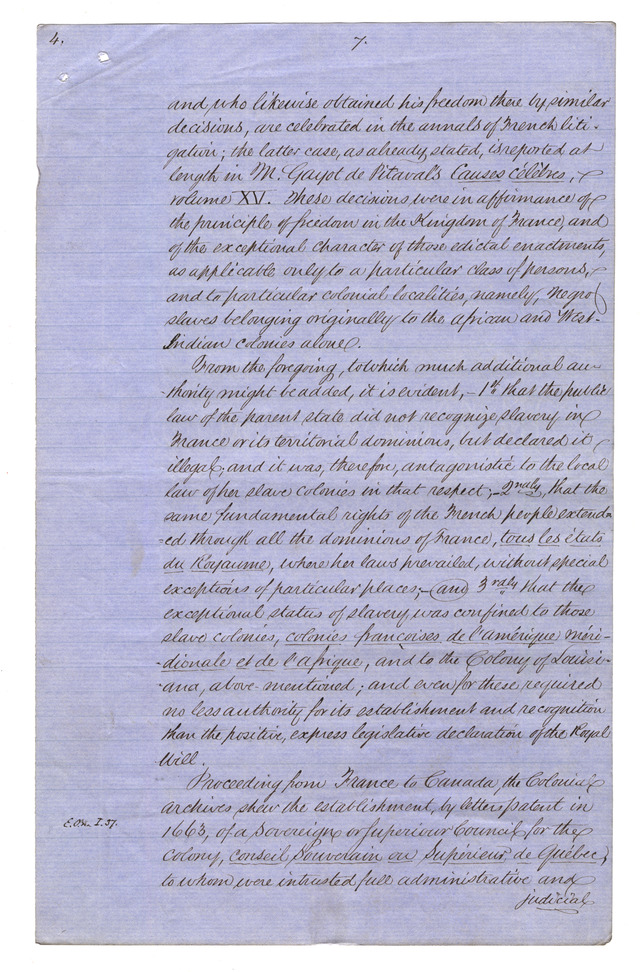 4.
7.
and, who likewise obtained his freedom there by similar
decisions, are celebrated in the annals of French liti-
gation; the latter case, as already stated, is reported at
length in M. Gayot de Pitaval's Causes célèbres,
volume XV. These decisions were in affirmance of
the principle of freedom in the Kingdom of France, and
of the exceptional character of those edictal enactments,
as applicable only to a particular class of persons,
and to particular colonial localities, namely, negro
slaves belonging originally to the African and West-
Indian colonies alone.
From the foregoing, to which much additional au-
-thority might be added, it is evident, - 1st that the public
law of the parent state did not recognize slavery in
France or its territorial dominions, but declared it
illegal; and it was, therefore, antagonistic to the local
law of her slave colonies in that respect; - 2ndly, that the
same fundamental rights of the French people extend-
-ed through all the dominions of France, tous les états
du Royaume, where her laws prevailed, without special
exceptions of particular places; - and 3rdly that the
exceptional status of slavery was confined to those
slave colonies, colonies françoises de l'amérique méri-
-dionale et de l'afrique, and to the Colony of Louisi-
-ana, above-mentioned; and even for these required
no less authority for its establishment and recognition
than the positive, express legislative declaration of the Royal
Will.
Proceeding from France to Canada, the Colonial
archives show the establishment, by letters patent in
E. On. I. 37.
1663, of a Sovereign or Superiour Council, for the
Colony, conseil Souverain ou Supérieur de Québec,
to whom were intrusted full administrative and
judicial